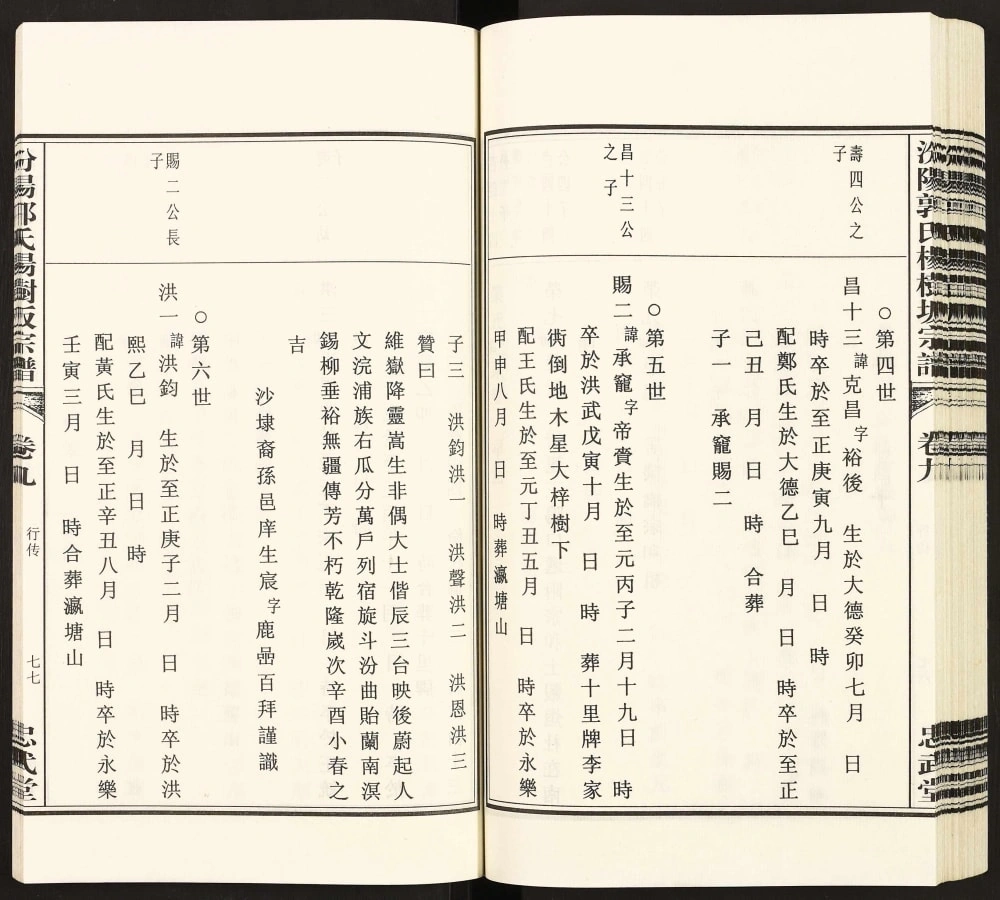 汾陽郭氏楊樹坂宗譜
卷九
忠武堂
壽四公之
子
○第四世
昌十三諱克昌字裕後 生於大德癸卯七月 日
時卒於至正庚寅九月 日 時
配鄭氏生於大德乙巳 月 日 時卒於至正
己丑 月 日 時 合葬
子一 承寵賜二
昌十三公
之子
○第五世
賜二諱承寵字帝賚生於至元丙子二月十九日 時
卒於洪武戊寅十月 日 時 葬十里牌李家
衖倒地木星大梓樹下
配王氏生於至元丁丑五月 日 時卒於永樂
甲申八月 日 時葬瀛塘山
子三 洪鈞洪一 洪聲洪二 洪恩洪三
贊曰
維嶽降靈嵩生非偶大士偕辰三台映後蔚起人
文浣浦族右瓜分萬戶列宿旋斗汾曲貽蘭南溟
錫柳垂裕無疆傳芳不朽乾隆嵗次辛酉小春之
吉
沙埭裔孫邑庠生宸字鹿嵒百拜謹識
賜二公長
子
○第六世
洪一諱洪鈞 生於至正庚子二月 日 時卒於洪
熙乙巳 月 日 時
配黃氏生於至正辛丑八月 日 時卒於永樂
壬寅三月 日 時合葬瀛塘山
汾陽郭氏楊樹坂宗譜
卷九
行传
七七
忠武堂